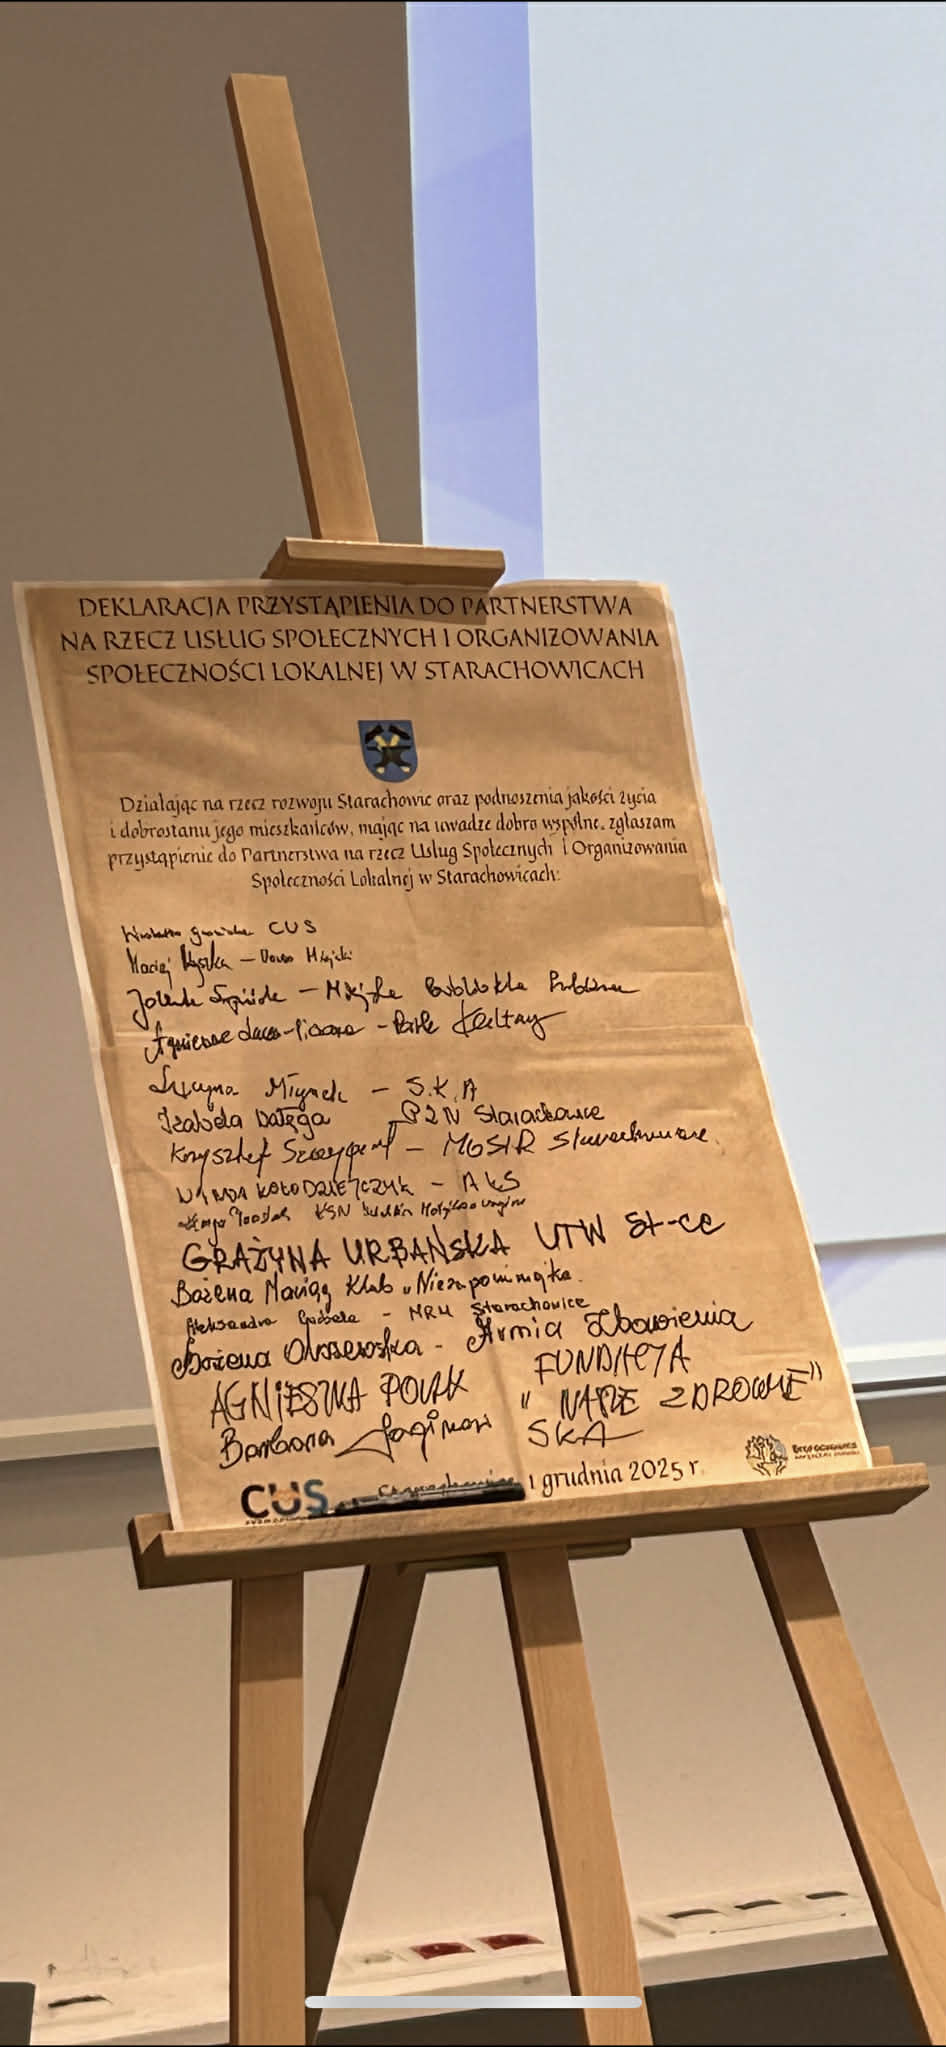 DEKLARACJA PRZYSTĄPIENIA DO PARTNERSTWA
NA RZECZ USŁUG SPOŁECZNYCH I ORGANIZOWANIA
SPOŁECZNOŚCI LOKALNEJ W STARACHOWICACH
Działając na rzecz rozwoju Starachowic oraz podnoszenia jakości życia
i dobrostanu jego mieszkańców, mając na uwadze dobro wspólne, zgłaszam
przystąpienie do Partnerstwa na rzecz Usług Społecznych i Organizowania
Społeczności Lokalnej w Starachowicach:
CUS
Maciej Myszka –
Jolanta – Miejska Biblioteka Publiczna
Agnieszka –
Młynek – S.K.A
Izabela Dałęga PZN Starachowice
Krzysztof – MOSIR Starachowice
WANDA KOŁODZIEJCZYK –
KSN
GRAŻYNA URBAŃSKA UTW St-ce
Bożena Maciąg Klub „Niezapominajka"
Aleksandra – MRM Starachowice
Bożena – Armia Zbawienia
AGNIESZKA FUNDACJA
"NASZE ZDROWIE"
Barbara SKA
CUS 1 grudnia 2025 r.